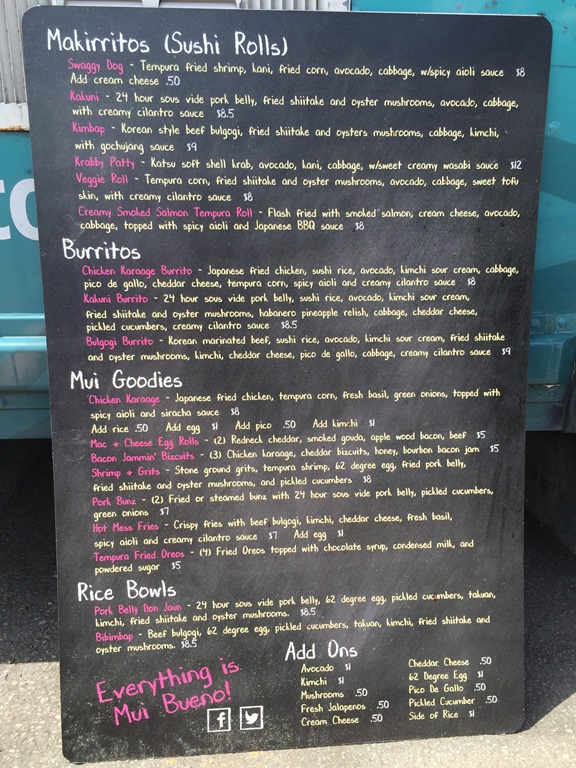 Makirritos (Sushi Rolls)
Swaggy Dog - Tempura fried shrimp, kani, fried corn, avocado, cabbage, w/spicy aioli sauce $8
Add cream cheese .50
Kakuni - 24 hour sous vide pork belly, fried shiitake and oyster mushrooms, avocado, cabbage,
with creamy cilantro sauce $8.5
Kimbap - Korean style beef bulgogi, fried shiitake and oysters mushrooms, cabbage, kimchi,
with gochujang sauce $9
Krabby Patty - Katsu soft shell krab, avocado, kani, cabbage, w/sweet creamy wasabi sauce $12
Veggie Roll - Tempura corn, fried shiitake and oyster mushrooms, avocado, cabbage, sweet tofu
skin, with creamy cilantro sauce $8
Creamy Smoked Salmon Tempura Roll - Flash fried with smoked salmon, cream cheese, avocado,
cabbage, topped with spicy aioli and Japanese BBQ sauce $8
Burritos
Chicken Karaage Burrito - Japanese fried chicken, sushi rice, avocado, kimchi sour cream, cabbage,
pico de gallo, cheddar cheese, tempura corn, spicy aioli and creamy cilantro sauce $8
Kakuni Burrito - 24 hour sous vide pork belly, sushi rice, avocado, kimchi sour cream,
fried shiitake and oyster mushrooms, habanero pineapple relish, cabbage, cheddar cheese,
pickled cucumbers, creamy cilantro sauce $8.5
Bulgogi Burrito - Korean marinated beef, sushi rice, avocado, kimchi sour cream, fried shiitake
and oyster mushrooms, kimchi, cheddar cheese, pico de gallo, cabbage, creamy cilantro sauce $9
Mui Goodies
Chicken Karaage - Japanese fried chicken, tempura corn, fresh basil, green onions, topped with
spicy aioli and siracha sauce $8
Add rice .50 Add egg $1 Add pico .50 Add kimchi $1
Mac + Cheese Egg Rolls - (2) Redneck cheddar, smoked gouda, apple wood bacon, beef $5
Bacon Jammin' Bizcuits - (3) Chicken karaage, cheddar bizcuits, honey, bourbon bacon jam $5
Shrimp + Grits - Stone ground grits, tempura shrimp, 62 degree egg, fried pork belly,
fried shiitake and oyster mushrooms, and pickled cucumbers $8
Pork Bunz - (2) Fried or steamed bunz with 24 hour sous vide pork belly, pickled cucumbers,
green onions $7
Hot Mess Fries - Crispy fries with beef bulgogi, kimchi, cheddar cheese, fresh basil,
spicy aioli and creamy cilantro sauce $7 Add egg $1
Tempura Fried Oreos - (4) Fried Oreos topped with chocolate syrup, condensed milk, and
powdered sugar $5
Rice Bowls
Pork Belly Don Jaun - 24 hour sous vide pork belly, 62 degree egg, pickled cucumbers, takuan,
kimchi, fried shiitake and oyster mushrooms. $8.5
Bibimbap - Beef bulgogi, 62 degree egg, pickled cucumbers, takuan, kimchi, fried shiitake and
oyster mushrooms. $8.5
Everything is
Mui Bueno!
Add Ons
Avocado $1
Kimchi $1
Mushrooms .50
Fresh Jalapenos .50
Cream Cheese .50
Cheddar Cheese .50
62 Degree Egg $1
Pico De Gallo .50
Pickled Cucumber .50
Side of Rice $1